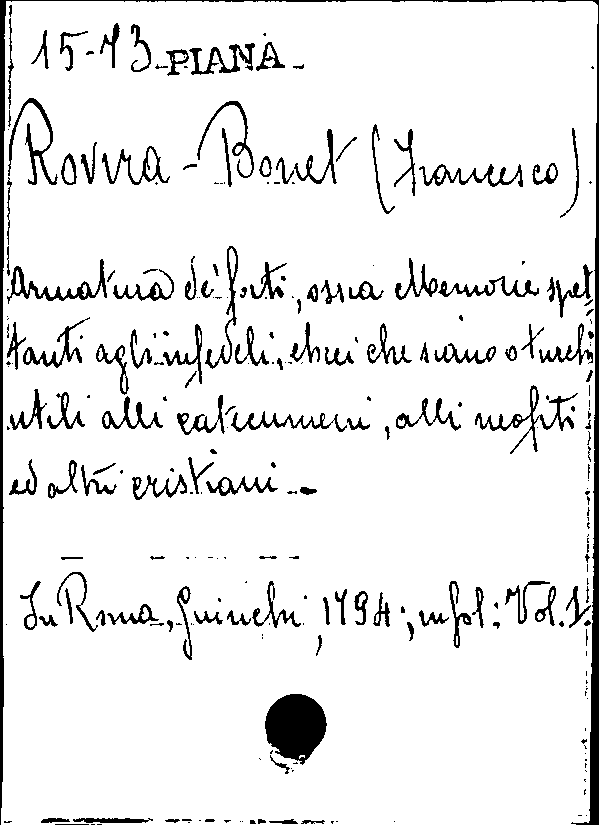 15-73 PIANA
Rovira-Bonet (Francesco)
Armatura de' forti, ossia Memorie spet
tanti agli infedeli, ebrei che siano o turchi
utili alli catecumeni, alli neofiti
ed altri cristiani -
In Roma, Quinchi, 1794; in fol: Vol. 1.